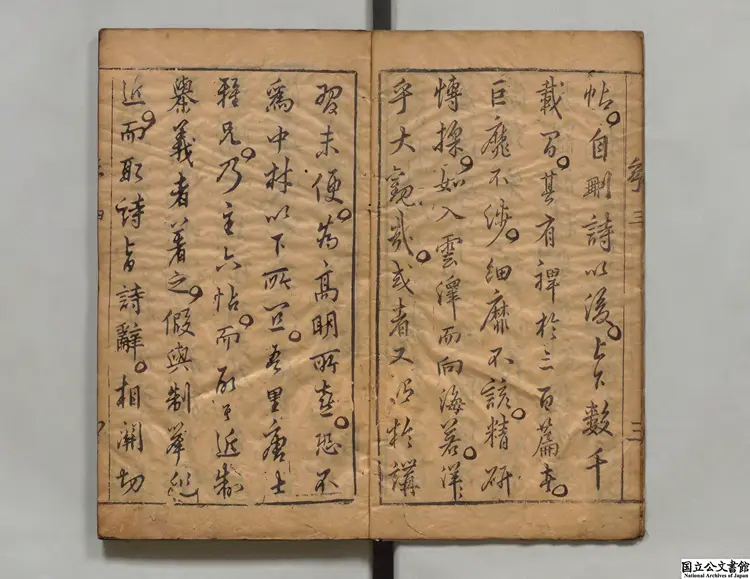 帖。自刪詩以後。上下數千
載間。其有裨於三百篇者。
巨靡不涉。細靡不諺。精研
博採。如入雲澤而向海若。洋
乎大觀哉。或者又以於講
習未便。為高明所喜。恐不
為中材以下所宜。吾里唐士
雅兄。乃主六帖。而取其近制
舉義者著之。假與制舉
近而取詩旨詩辭。相關切
序三
三
国立公文書館
National Archives of Japan